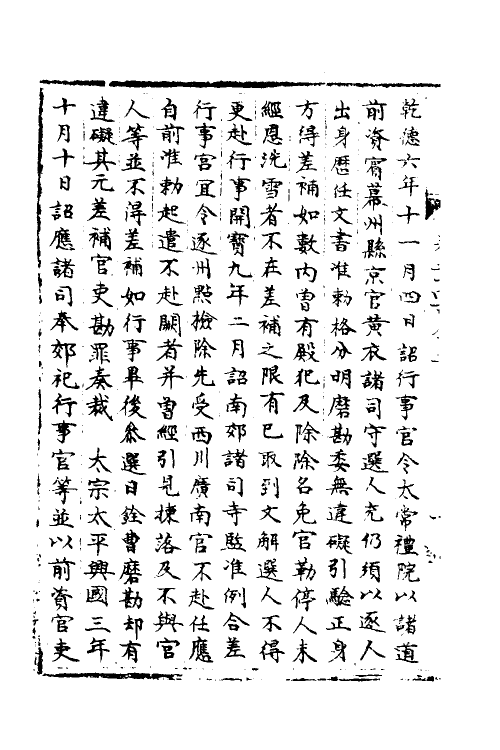 乾德六年十一月四日詔行事官令太常禮院以諸道
前資賓幕州縣京官黃衣諸司守選人充仍須以逐人
出身歷任文書准勅格分明磨勘委無違礙引驗正身
方得差補如數內曾有殿犯及除除名免官勒停人未
經恩洗雪者不在差補之限有已取到文解選人不得
更赴行事開寶九年二月詔南郊諸司寺監准例合差
行事官宜令逐州點撿除先受西川廣南官不赴任應
自前准勅起遣不赴闕者并曾經引見揀落及不與官
人等並不得差補如行事畢後叅選日銓曹磨勘却有
違礙其元差補官吏勘罪奏裁　太宗太平興國三年
十月十日詔應諸司奉郊祀行事官等並以前資官吏